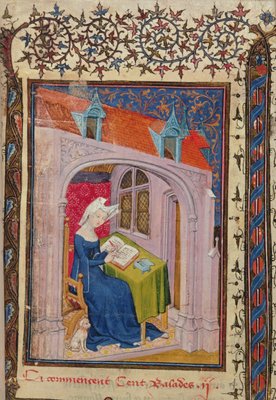 Cy commencent Cent Balades